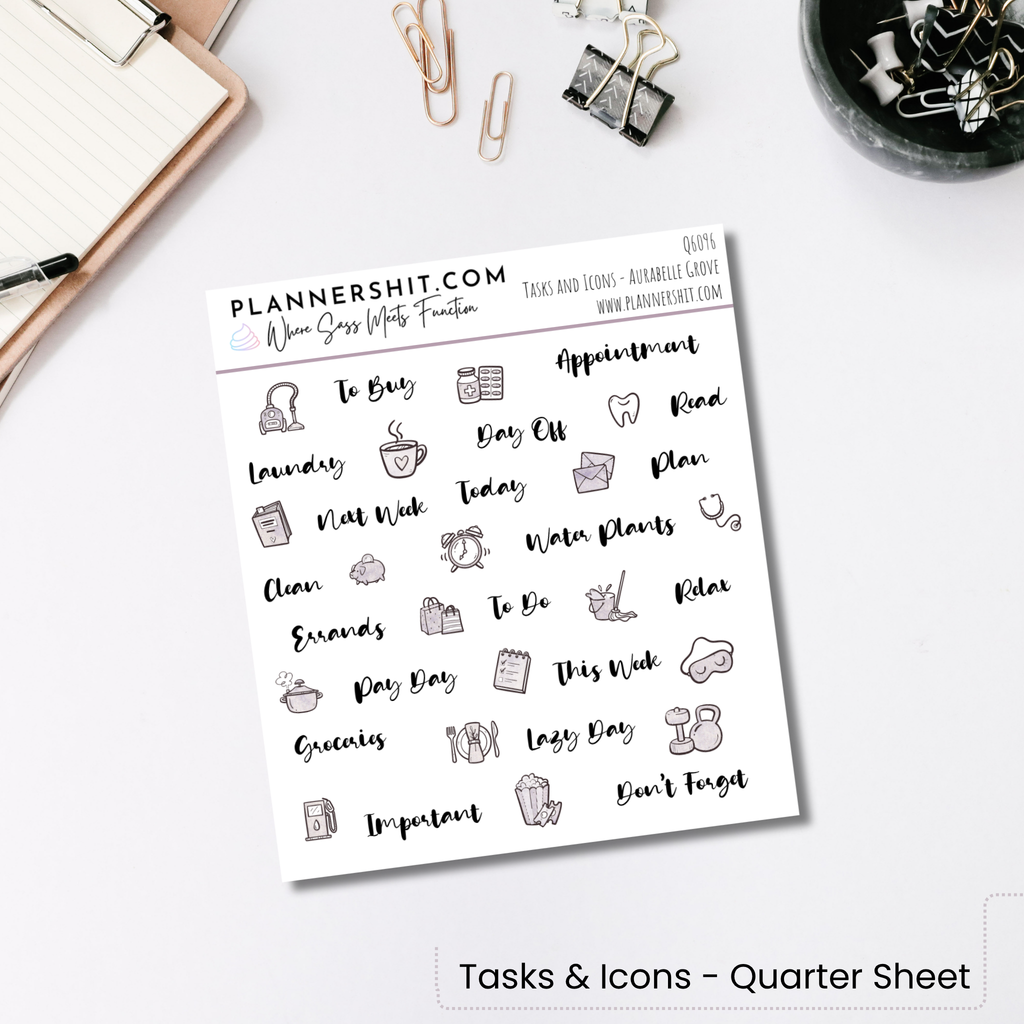 PLANNERSHIT.COM
Where Sass Meets Function
Q6096
Tasks and Icons - Aurabelle Grove
www.plannershit.com
To Buy
Appointment
Laundry
Day Off
Read
Next Week
Today
Plan
Clean
Water Plants
Errands
To Do
Relax
Pay Day
This Week
Groceries
Lazy Day
Important
Don't Forget
Tasks & Icons - Quarter Sheet